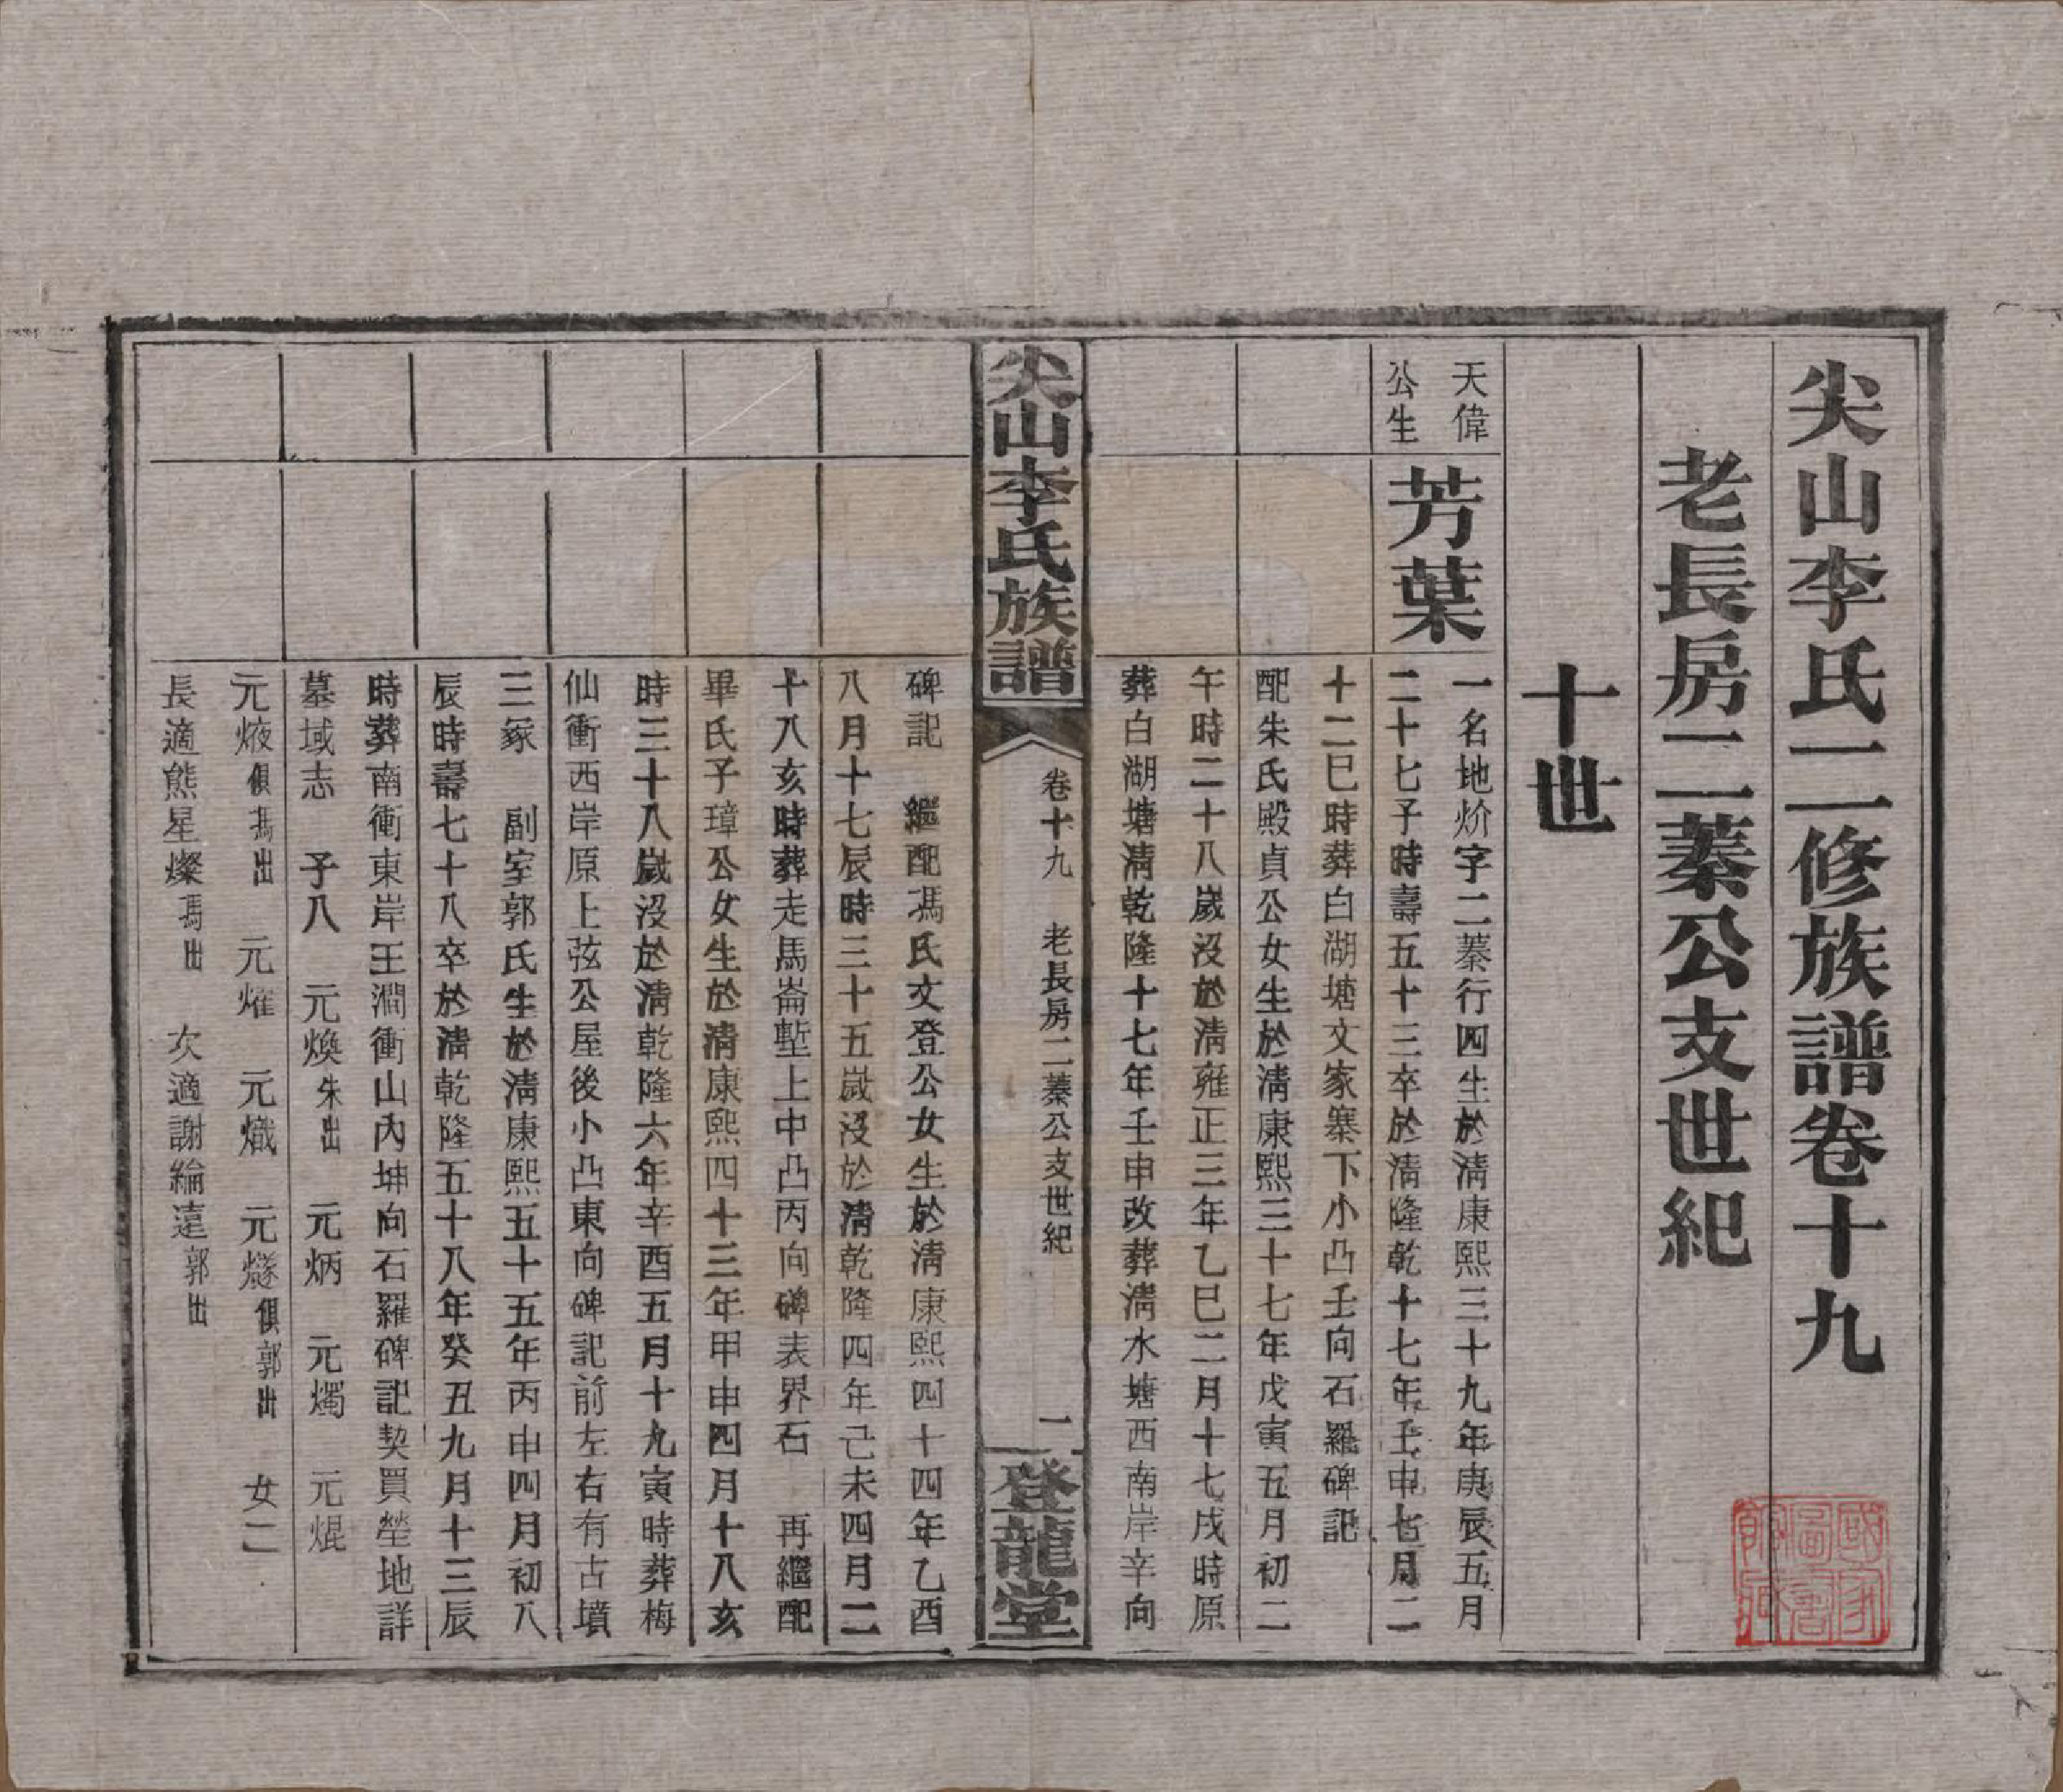 尖山李氏二修族譜卷十九
老長房二蓁公支世紀
十世
天偉
公生
芳葉
一名地炌字二蓁行四生於清康熙三十九年庚辰五月
二十七子時壽五十三卒於清隆乾十七年壬申七月二
十二巳時葬白湖塘文家寨下小凸壬向石羅碑記
配朱氏殿貞公女生於清康熙三十七年戊寅五月初二
午時二十八歲沒於清雍正三年乙巳二月十七戌時原
葬白湖塘清乾隆十七年壬申改葬清水塘西南岸辛向
尖山李氏族譜
卷十九 老長房二蓁公支世紀
一
登龍堂
碑記 繼配馮氏文登公女生於清康熙四十四年乙酉
八月十七辰時三十五歲沒於清乾隆四年己未四月二
十八亥時葬走馬崙塹上中凸丙向碑表界石 再繼配
畢氏子璋公女生於清康熙四十三年甲申四月十八亥
時三十八歲沒於清乾隆六年辛酉五月十九寅時葬梅
仙衝西岸原上弦公屋後小凸東向碑記前左右有古墳
三冢 副室郭氏生於清康熙五十五年丙申四月初八
辰時壽七十八卒於清乾隆五十八年癸丑九月十三辰
時葬南衝東岸王澗衝山內坤向石羅碑記契買塋地詳
墓域志 子八 元煥朱出 元炳 元燭 元焜
元焲俱馮出 元燿 元熾 元燧俱郭出 女二
長適熊星燦馮出 次適謝綸遠郭出
國家圖書館藏